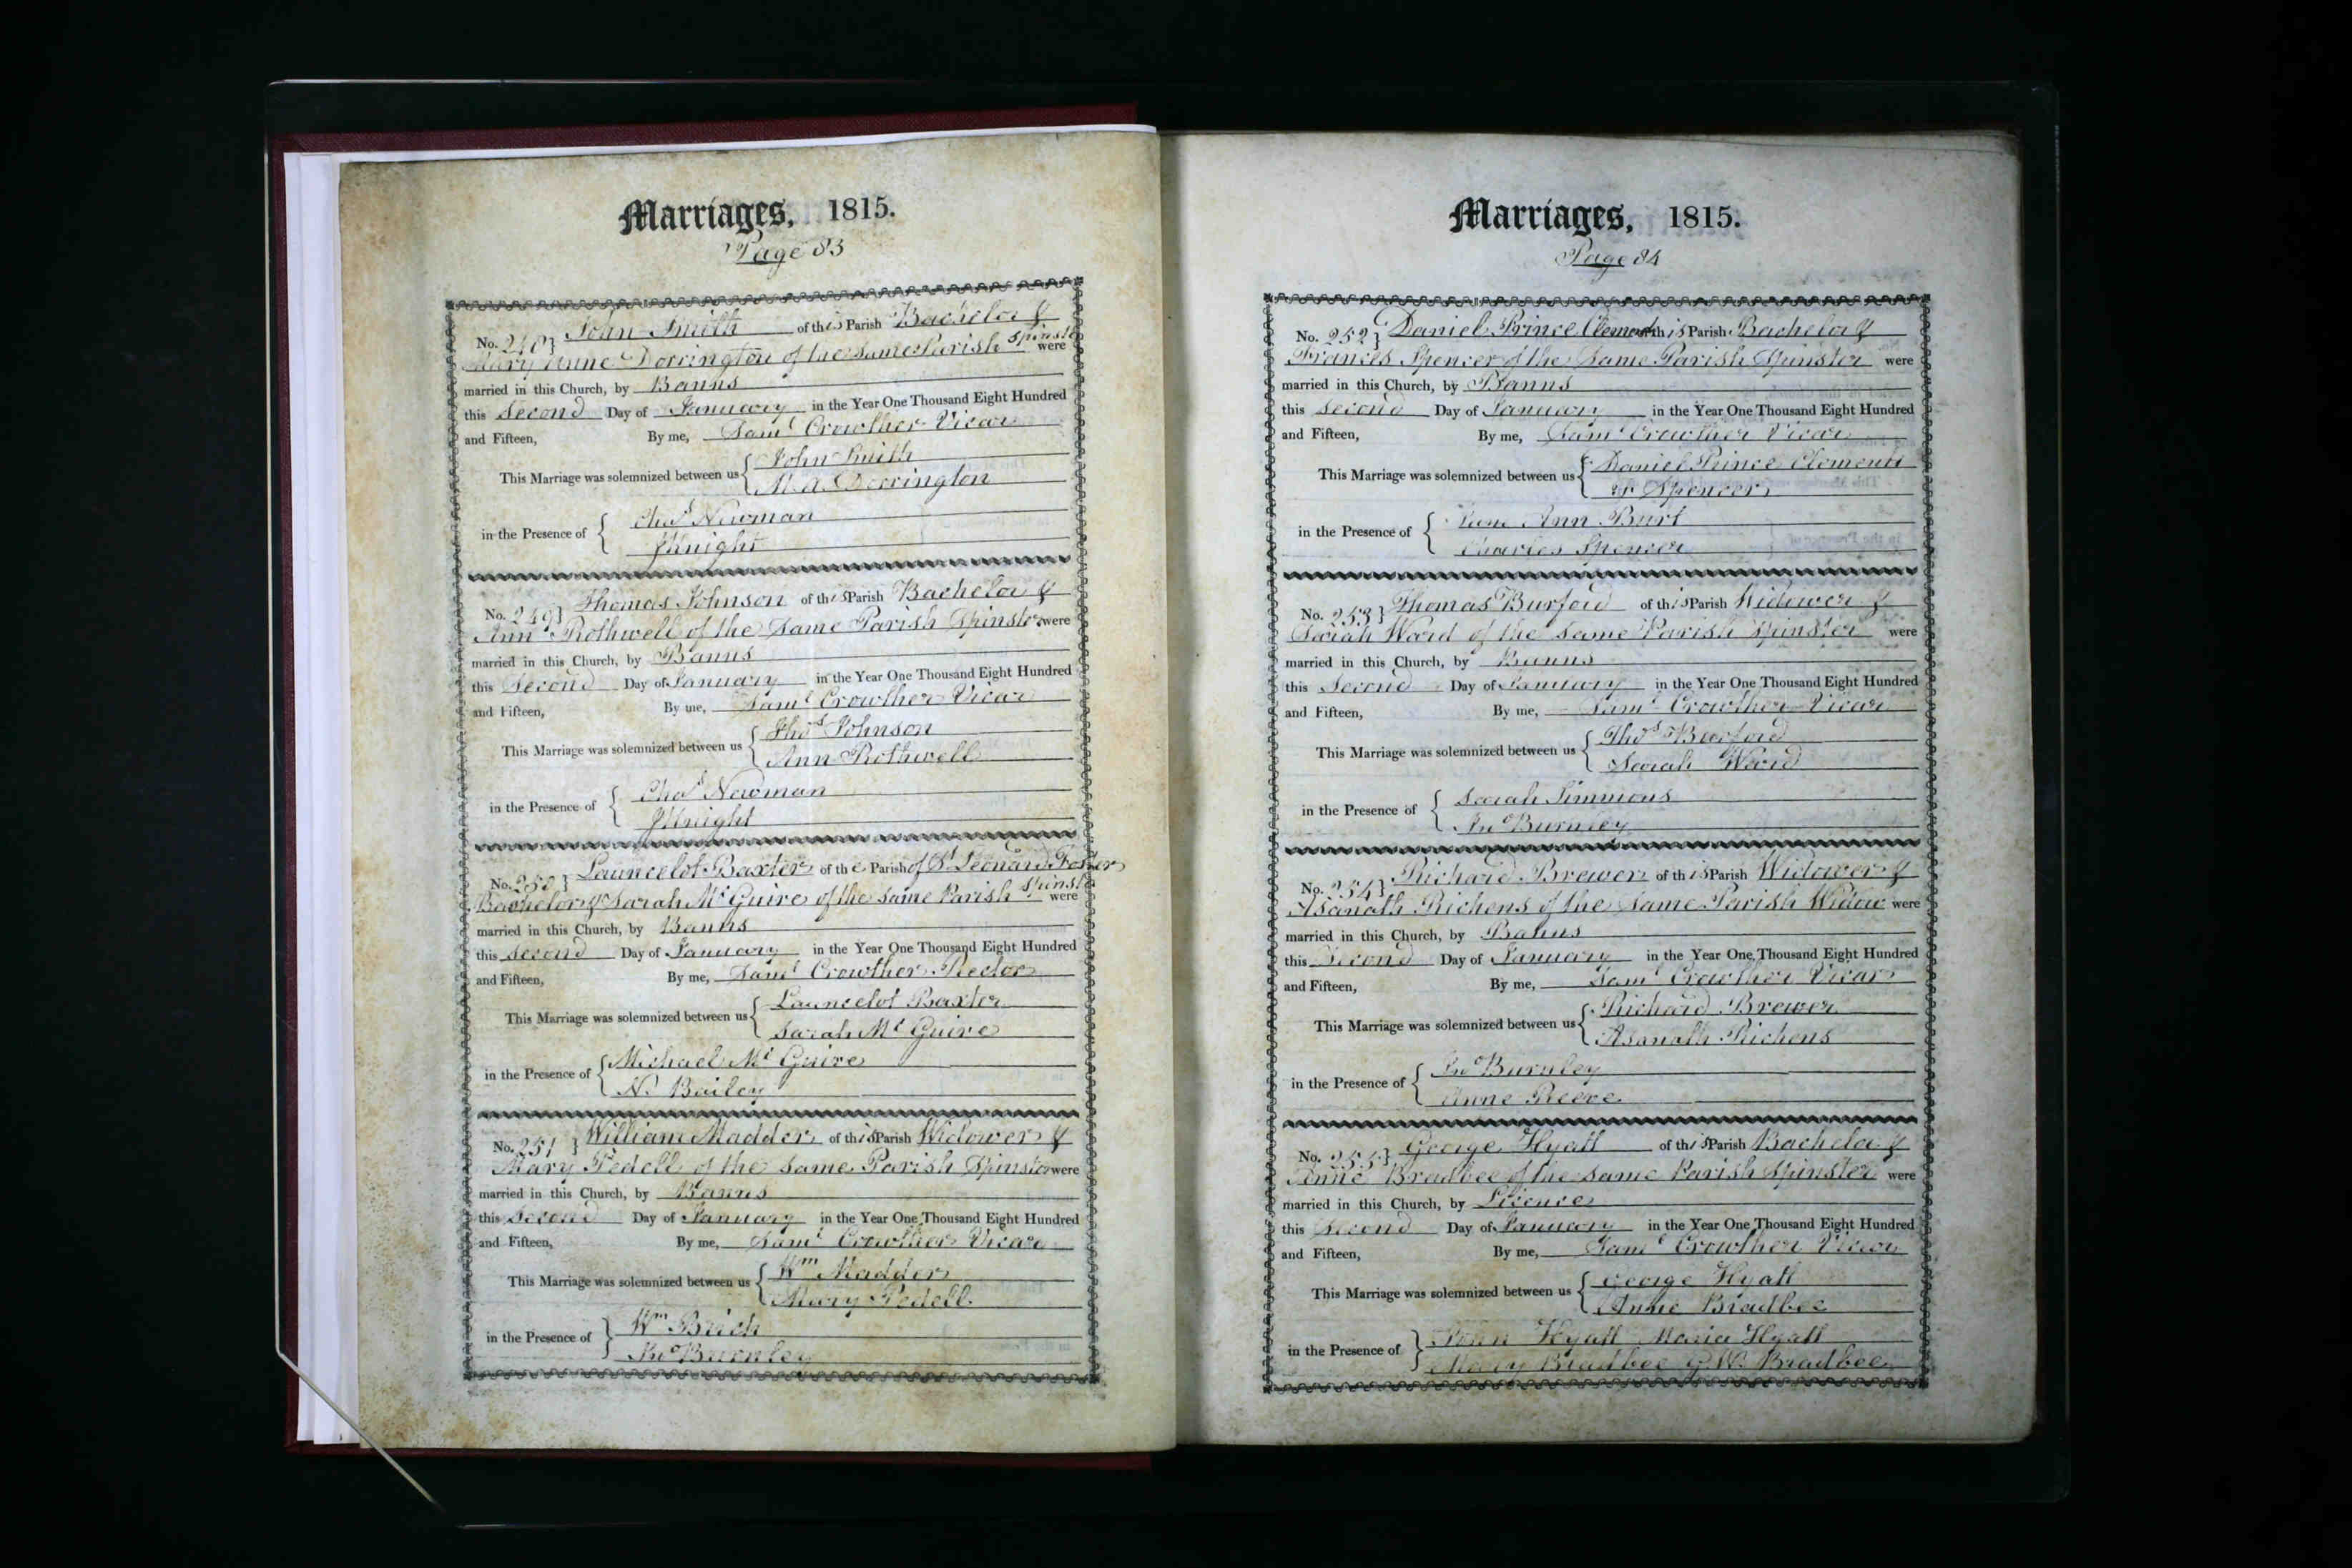 Marriages, 1815.
Page 83
No. 248} John Smith of this Parish Bachelor &
Mary Anne Dorrington of the same Parish Spinster were
married in this Church, by Banns
this Second Day of January in the Year One Thousand Eight Hundred
and Fifteen, By me, Saml Crowther Vicar
This Marriage was solemnized between us { John Smith
M. A. Dorrington
in the Presence of { Chas Newman
J Knight
No. 249} Thomas Johnson of this Parish Bachelor &
Ann Rothwell of the Same Parish Spinster were
married in this Church, by Banns
this Second Day of January in the Year One Thousand Eight Hundred
and Fifteen, By me, Saml Crowther Vicar
This Marriage was solemnized between us { Thos Johnson
Ann Rothwell
in the Presence of { Chas Newman
J Knight
No. 250} Launcelot Baxter of the Parish of St Leonard Foster
Bachelor & Sarah Mc Guire of the same Parish Spinster were
married in this Church, by Banns
this Second Day of January in the Year One Thousand Eight Hundred
and Fifteen, By me, Saml Crowther Rector
This Marriage was solemnized between us { Launcelot Baxter
Sarah Mc Guire
in the Presence of { Michael Mc Guire
N. Bailey
No. 251} William Madder of this Parish Widower &
Mary Fedell of the same Parish Spinster were
married in this Church, by Banns
this Second Day of January in the Year One Thousand Eight Hundred
and Fifteen, By me, Saml Crowther Vicar
This Marriage was solemnized between us { Wm Madder
Mary Fedell
in the Presence of } Wm Birch
Jno Burnley
Marriages, 1815.
Page 84
No. 252} Daniel Prince Clements of this Parish Bachelor &
Frances Spencer of the Same Parish Spinster were
married in this Church, by Banns
this Second Day of January in the Year One Thousand Eight Hundred
and Fifteen, By me, Saml Crowther Vicar
This Marriage was solemnized between us { Daniel Prince Clements
Spencer
in the Presence of { Ann Burt
Charles Spencer
No. 253} Thomas Burford of this Parish Widower &
Sarah Ward of the same Parish Spinster were
married in this Church, by Banns
this Second Day of January in the Year One Thousand Eight Hundred
and Fifteen, By me, Saml Crowther Vicar
This Marriage was solemnized between us { Thos Burford
Sarah Ward
in the Presence of { Sarah Simmons
Jno Burnley
No. 254} Richard Brewer of this Parish Widower &
Asanath Richens of the Same Parish Widow were
married in this Church, by Banns
this Second Day of January in the Year One Thousand Eight Hundred
and Fifteen, By me, Saml Crowther Vicar
This Marriage was solemnized between us { Richard Brewer
Asanath Richens
in the Presence of { Jno Burnley
Anne Reeve
No. 255} George Hyatt of this Parish Bachelor &
Anne Bradbee of the same Parish Spinster were
married in this Church, by Licence
this Second Day of January in the Year One Thousand Eight Hundred
and Fifteen, By me, Saml Crowther Vicar
This Marriage was solemnized between us { George Hyatt
Anne Bradbee
in the Presence of } John Hyatt Maria Hyatt
Mary Bradbee G. W. Bradbee